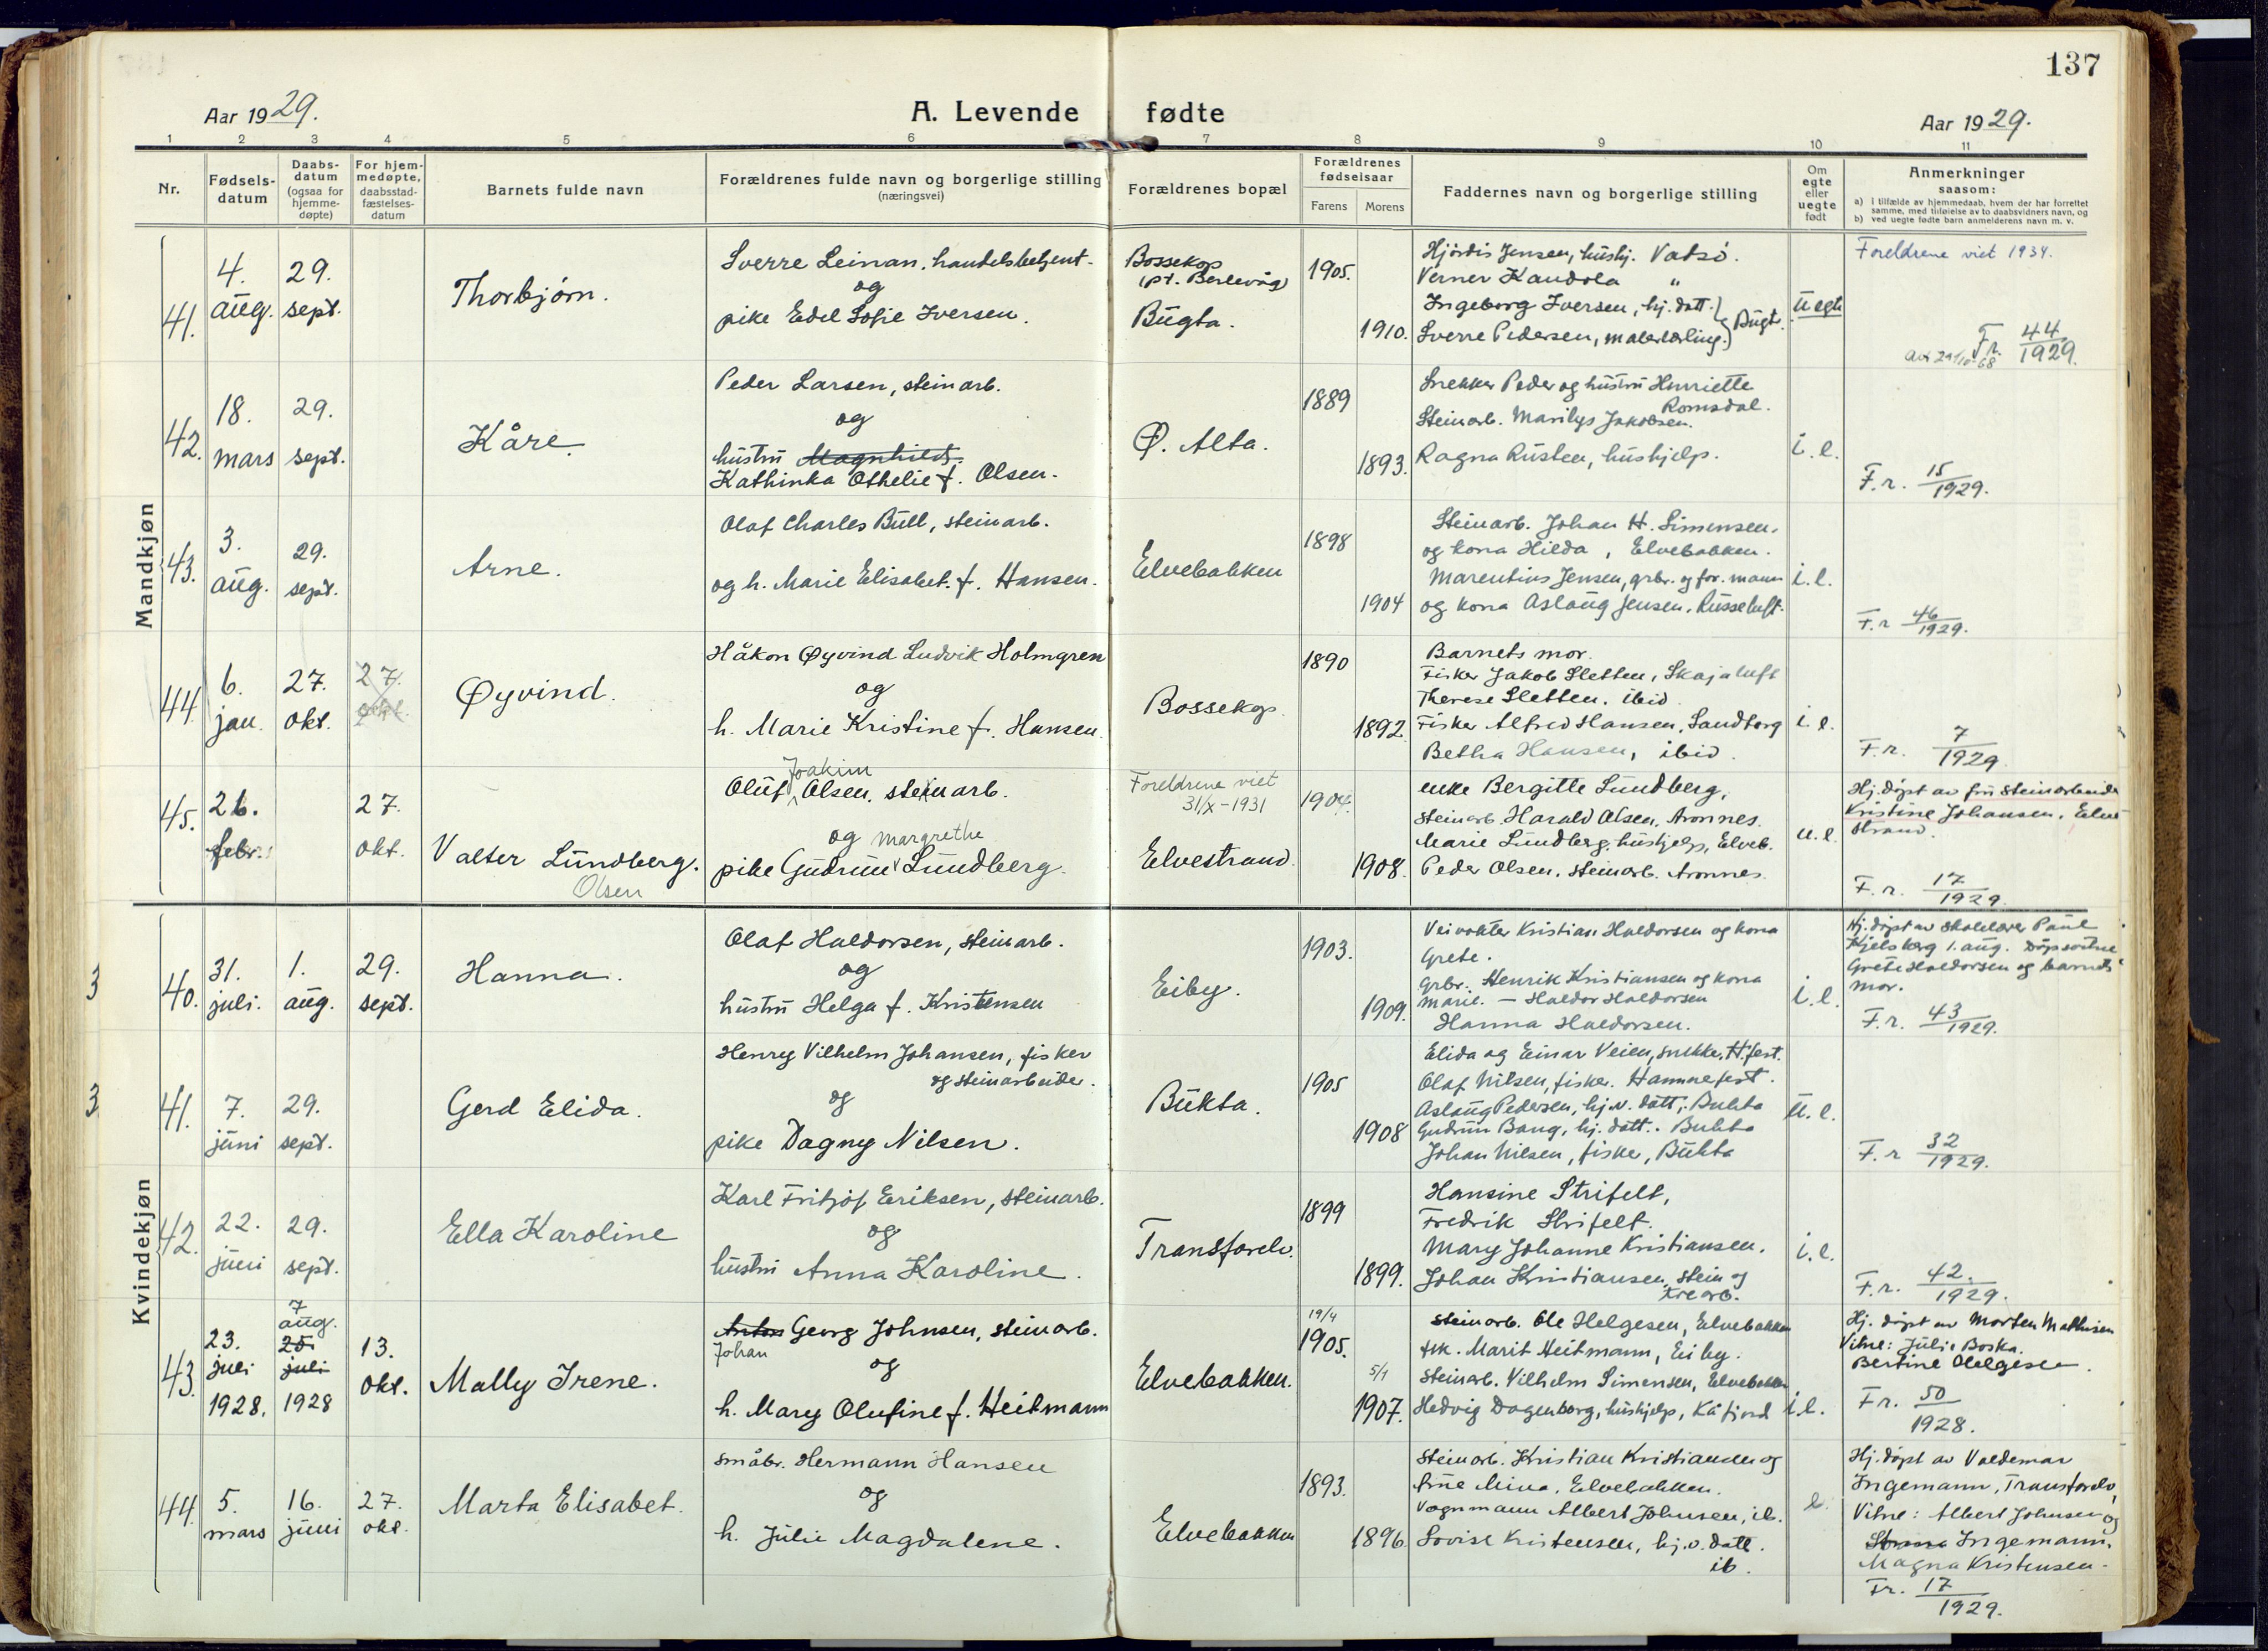 137
Aar 1929.
A. Levende fødte
Aar 1929.
1 2 3 4 5 6 7 8 9 10 11
Nr.
Fødsels-
datum
Daabs-
datum
(ogsaa for
hjemme-
døpte)
For hjem-
medøpte,
daabsstad-
fæstelses-
datum
Barnets fulde navn
Forældrenes fulde navn og borgerlige stilling
(næringsvei)
Forældrenes bopæl
Forældrenes
fødselsaar
Farens
Morens
Faddernes navn og borgerlige stilling
Om
egte
eller
uegte
født
Anmerkninger
saasom:
a) i tilfælde av hjemmedaab, hvem der har forrettet
samme, med tilføielse av to daabsvidners navn, og
b) ved uegte fødte barn anmelderens navn m. v.
Mandkjøn
41.
4.
aug.
29.
sept.
Thorbjørn.
Sverre Leinan, handelsbetjent.
og
pike Edel Sofie Iversen.
Bossekop
(pt. Berlevåg)
Bugta.
1905.
1910.
Hjördis Jensen, hushj. Vadsö.
Verner Kandola "
Ingeborg Iversen, hj. datt.
Sverre Pedersen, malerlærling.
Bugt.
Uegte
Foreldrene viet 1934.
F.r. 44
1929.
42.
18.
mars
29.
sept.
Kåre.
Peder Larsen, steinarb.
og
hustru Magnhild
Kathinka Othelie f. Olsen.
Ø. Alta.
1889
1893.
Snekker Peder og hustru Henriette
Romsdal.
Steinarb. Marilys Jakobsen.
Ragna Rusten, hushjelp.
i.e.
F.r. 15
1929.
43.
3.
aug.
29.
sept.
Arne.
Olaf Charles Bull, steinarb.
og h. Marie Elisabet. f. Hansen.
Elvebakken
1898
1904
Steinarb. Johan H. Simensen.
og kona Hilda, Elvebakken.
Marentius Jensen, grbr. og for.mann
og kona Aslaug Jensen. Russeluft.
i.e.
F.r 46
1929.
44.
6.
jan.
27.
okt.
27.
okt.
Øyvind.
Håkon Øyvind Ludvik Holmgren
og
h. Marie Kristine f. Hansen.
Bossekop.
1890
1892.
Barnets mor.
Fisker Jakob Sletten, Skajaluft
Therese Sletten. ibid.
Fisker Alfred Hansen, Sandtorg
Betha Hansen, ibid.
i.e.
F.r. 7
1929.
45.
26.
febr.
27.
okt.
Valter Lundberg.
Olsen
Joakim
Oluf Olsen. steinarb.
og Margrethe
pike Gudrun Lundberg.
Foreldrene viet
31/X-1931
Elvestrand.
1904.
1908.
enke Bergitte Lundberg,
steinarb. Harald Olsen, Aronnes.
Marie Lundberg, hushjelp, Elveb.
Peder Olsen. steinarb. Aronnes.
u.e.
Hj.döpt av fru steinarbeider
Kristine Johansen, Elve-
strand.
F.r. 17
1929.
Kvindekjøn
3
40.
31.
juli.
1.
aug.
29.
sept.
Hanna.
Olaf Haldorsen, steinarb.
og
hustru Helga f. Kristensen
Eiby.
1903.
1909.
Veivokter Kristian Haldorsen og kona
Grete.
Grbr. Henrik Kristiansen og kona
Marie. - Haldor Haldorsen
Hanna Haldorsen.
i.e.
Hj. döpt av skolelærer Paul
Kjelsberg 1. aug. Döpsvitne
Grete Haldorsen og barnets
mor.
F.r. 43
1929.
3
41.
7.
juni
29.
sept.
Gerd Elida.
Henry Vilhelm Johansen, fisker
og steinarbeider.
og
pike Dagny Nilsen.
Bukta.
1905
1908
Elida og Einar Veien, snekker, H'fest.
Olaf Nilsen, fisker. Hammerfest.
Aslaug Pedersen, hj.v. datt., Bukta
Gudrun Bang, hj. datt.. Bukta
Johan Nilsen, fisker, Bukta
U.e.
F.r 32
1929.
42.
22.
juni
29.
sept.
Ella Karoline
Karl Fritjof Eriksen, steinarb.
og
hustru Anna Karoline.
Transfarelv.
1899
1899.
Hansine Strifelt,
Fredrik Strifelt.
Mary Johanne Kristiansen.
Johan Kristiansen, stein og
trearb.
i.e.
F.r. 42.
1929.
43.
23.
juli
1928.
7
aug.
25.
juli
1928
13.
okt.
Mally Irene.
Anton Georg Johnsen, steinarb.
Johan
og
h. Mary Olufine f. Heitmann
Elvebakken.
19/4
1905.
5/1
1907.
Steinarb. Ole Helgesen, Elvebakken
frk. Marit Heitmann, Eiby.
Steinarb. Vilhelm Simensen, Elvebakken
Hedvig Dagenborg, hushjelp, Kåfjord
i.e.
Hj. döpt av Morten Mathisen
Vitne: Julie Boska.
Bertine Helgesen.
Fr. 50
1928.
44.
5.
mars
16.
juni
27.
okt.
Marta Elisabet.
småbr. Hermann Hansen
og
h. Julie Magdalene.
Elvebakken
1893.
1896.
Steinarb. Kristian Kristiansen og
frue Mina, Elvebakken.
Vognmann Albert Johnsen, ib.
Lovise Kristensen, hj.v. datt.
ib.
e.
Hj.döpt av Valdemar
Ingemann, Transfarelv,
Vitne: Albert Johnsen og
Ingemann.
Magna Kristensen.
Fr. 17
1929.